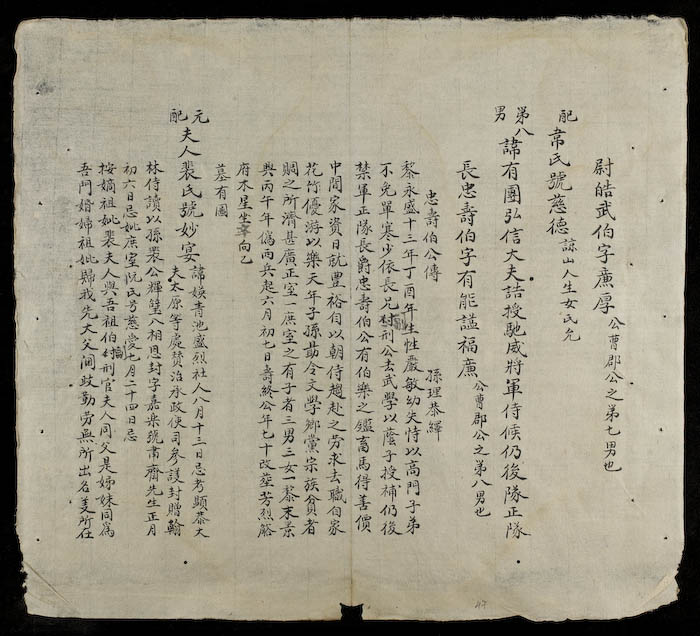 尉皓武伯字廉厚公曹郡公之第七男也
配韋氏號慈德諒山人生女氏允
第八男諱有團弘信大夫詰授馳威將軍侍候仍後隊正隊
長忠壽伯字有能謚福廉公曹郡公之第八男也
忠壽伯公傳 孫理恭繹
黎永盛十三年丁酉年生性嚴敏幼失恃以高門子弟
不免單寒少依長兄刑公去武學以蔭子授補仍後
禁軍正隊長爵忠壽伯公有伯樂之鑑畜馬得善價
中間家資日就豊裕自以朝侍趨赴之劳求去職自家
花竹優游以樂天年子孫勗令文學鄉黨宗族貧者
賙之所濟甚廣正室一庶室之有子者三男三女一黎末景
興丙午年僞西兵起六月初七日壽終公年七十改葬芳烈
府木星坐辛向乙
墓有圖
元配夫人裴氏號妙宴諱媖青池盛烈社人八月十三日忌考顯恭大
夫太原等處贊治承政使司參議封贈翰
林侍讀以孫裴公輝璧八相恩封字嘉樂號書齊先生正月
初六日忌妣庶室阮氏号慈愛七月二十四日忌
按嫡祖妣裴夫人與吾祖伯刑官夫人同父是姊妹同爲
吾門婚婦祖妣歸我先大父潤政勤劳無所出名姜所任